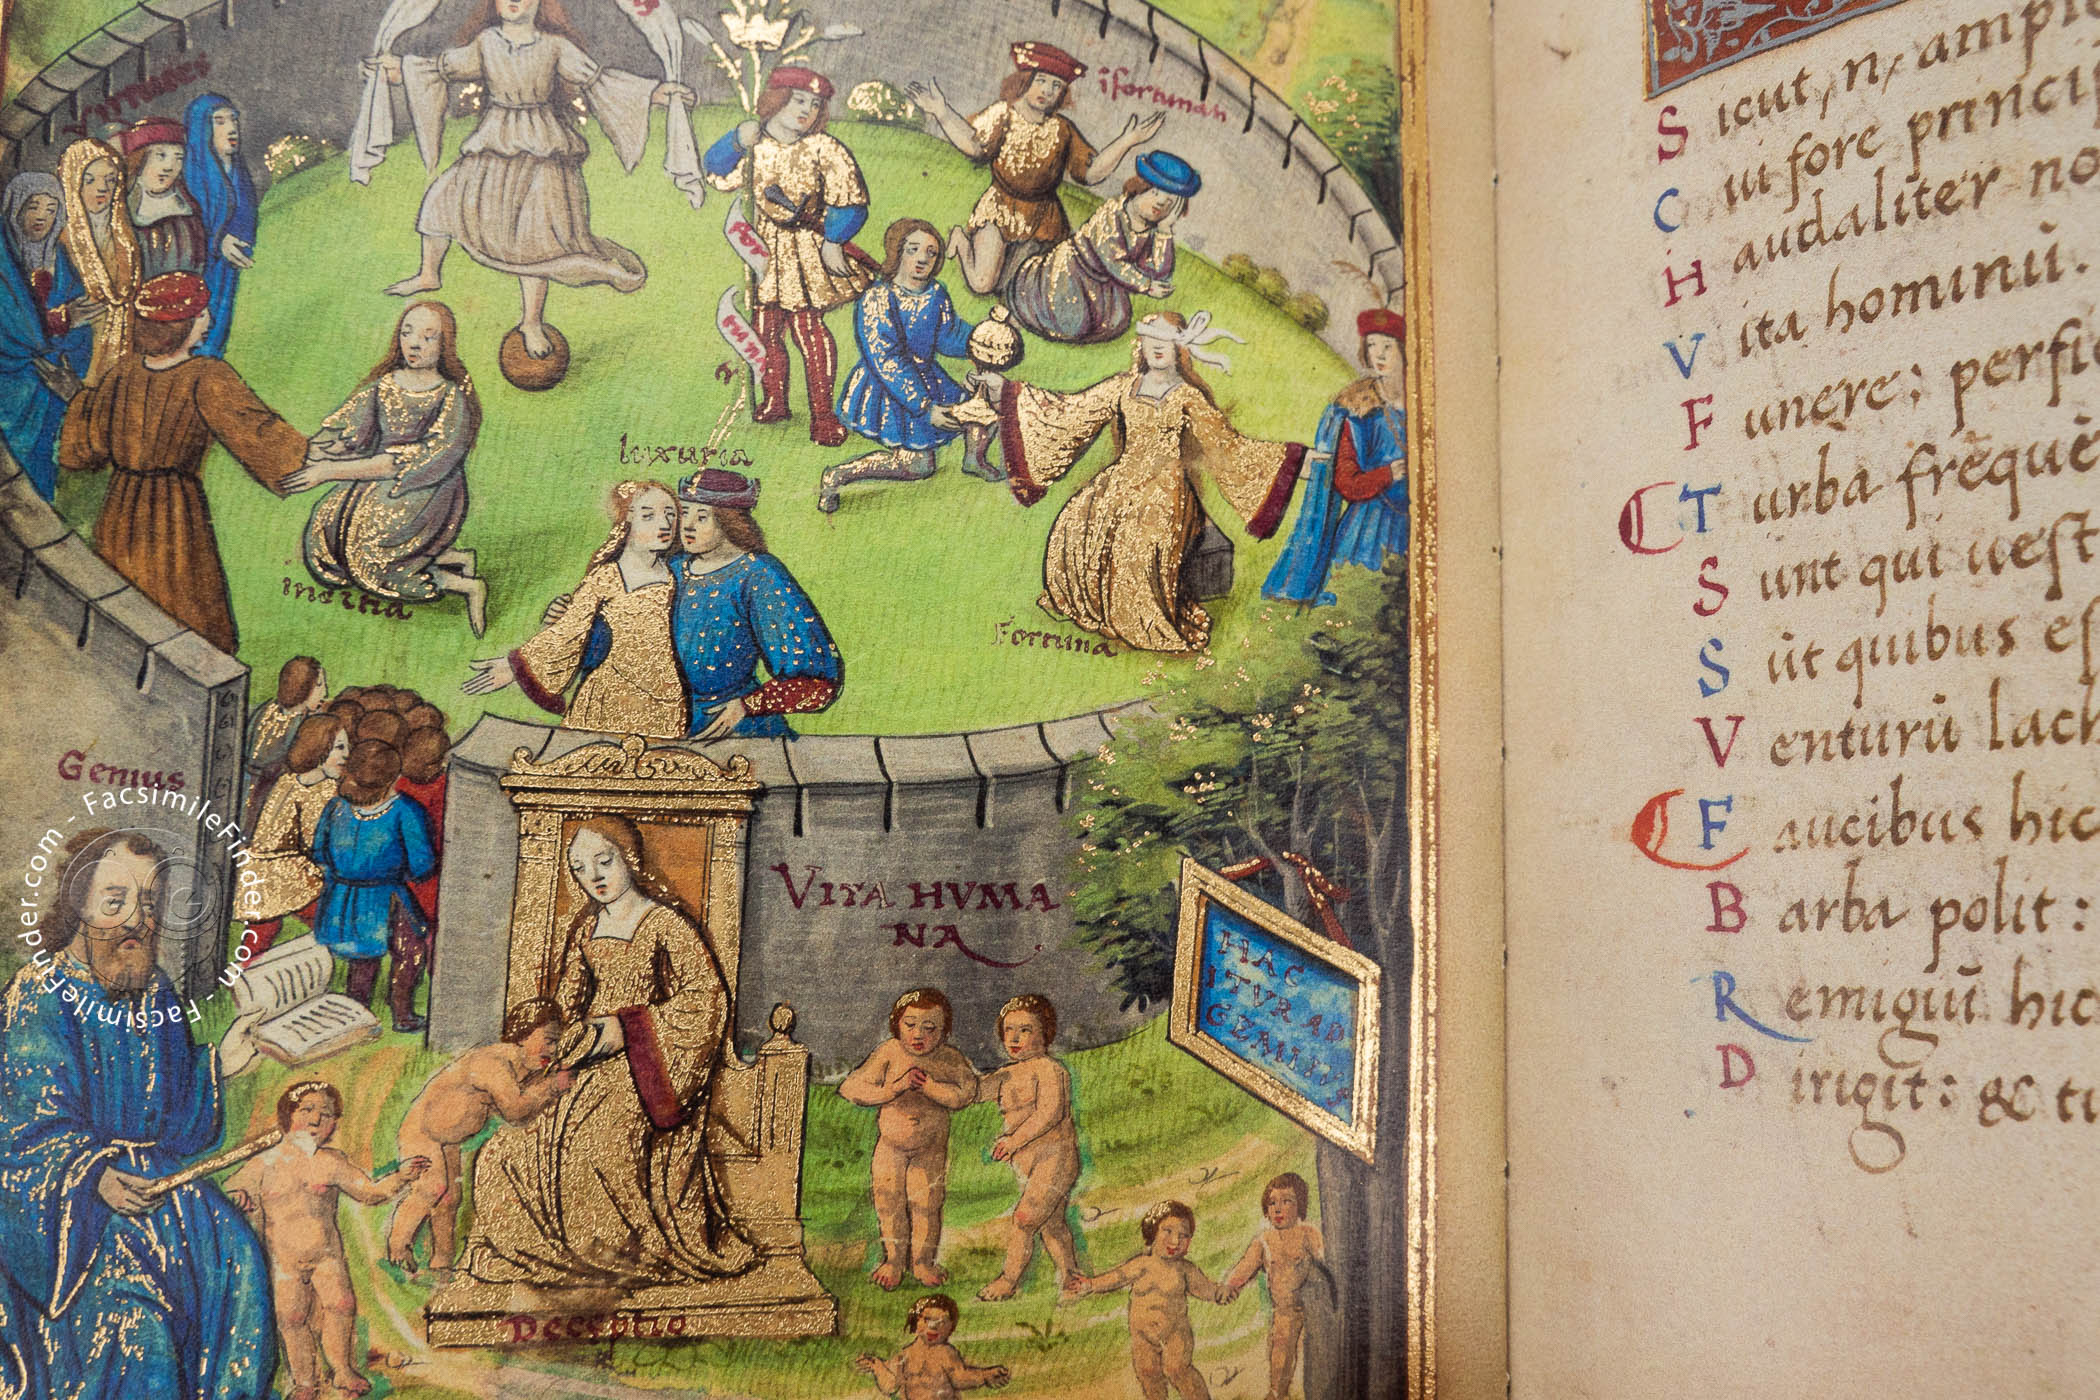 ifortunati
for
tuna
luxuria
inertia
Fortuna
Genius
VITA HVMA
NA
HAC
ITVR AD
Deceptio
FacsimileFinder.com - FacsimileFinder.com - FacsimileFinder.com
Sicut, n, ampl
Cui fore princip
Haudaliter no
Vita hominū.
Funere: perfi
Turba frēquē
Sunt qui uest
Sūt quibus es
Venturū lach
Faucibus hic
Barba polit:
Remigiū hic
Dirigit: & te